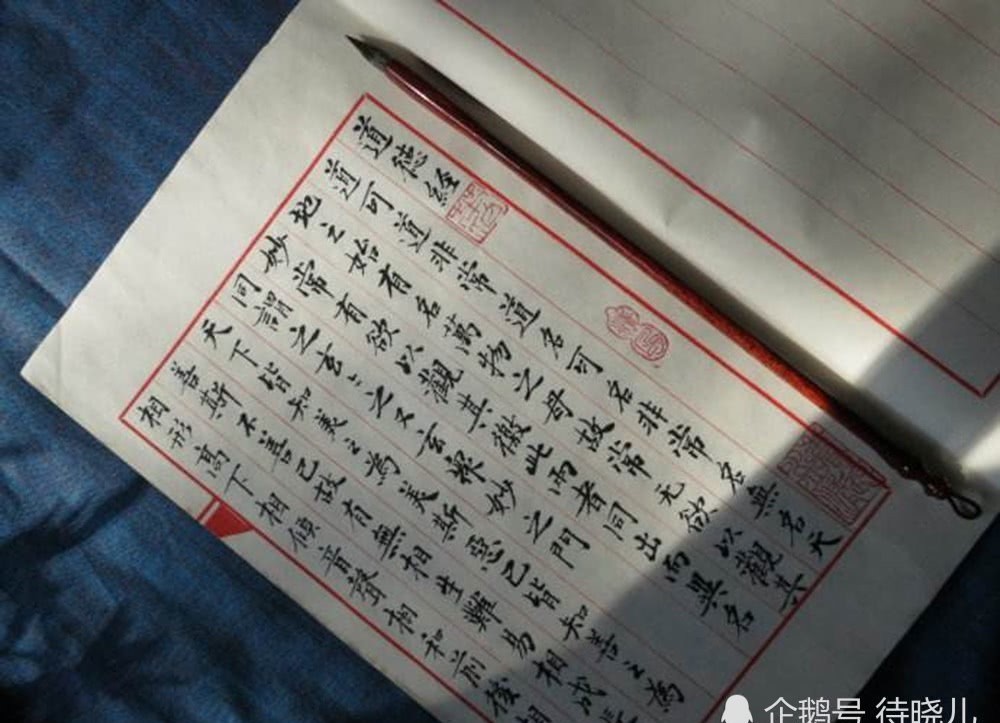 道德經
道可道非常道名可名非常名無名天
地之始有名萬物之母故常无欲以觀其
妙常有欲以觀其徼此兩者同出而異名
同謂之玄〻之又玄衆妙之門
天下皆知美之為美斯惡已皆知善之為
善斯不善已故有無相生難易相成
相形高下相傾音聲相和前後相
企鹅号 待晓儿